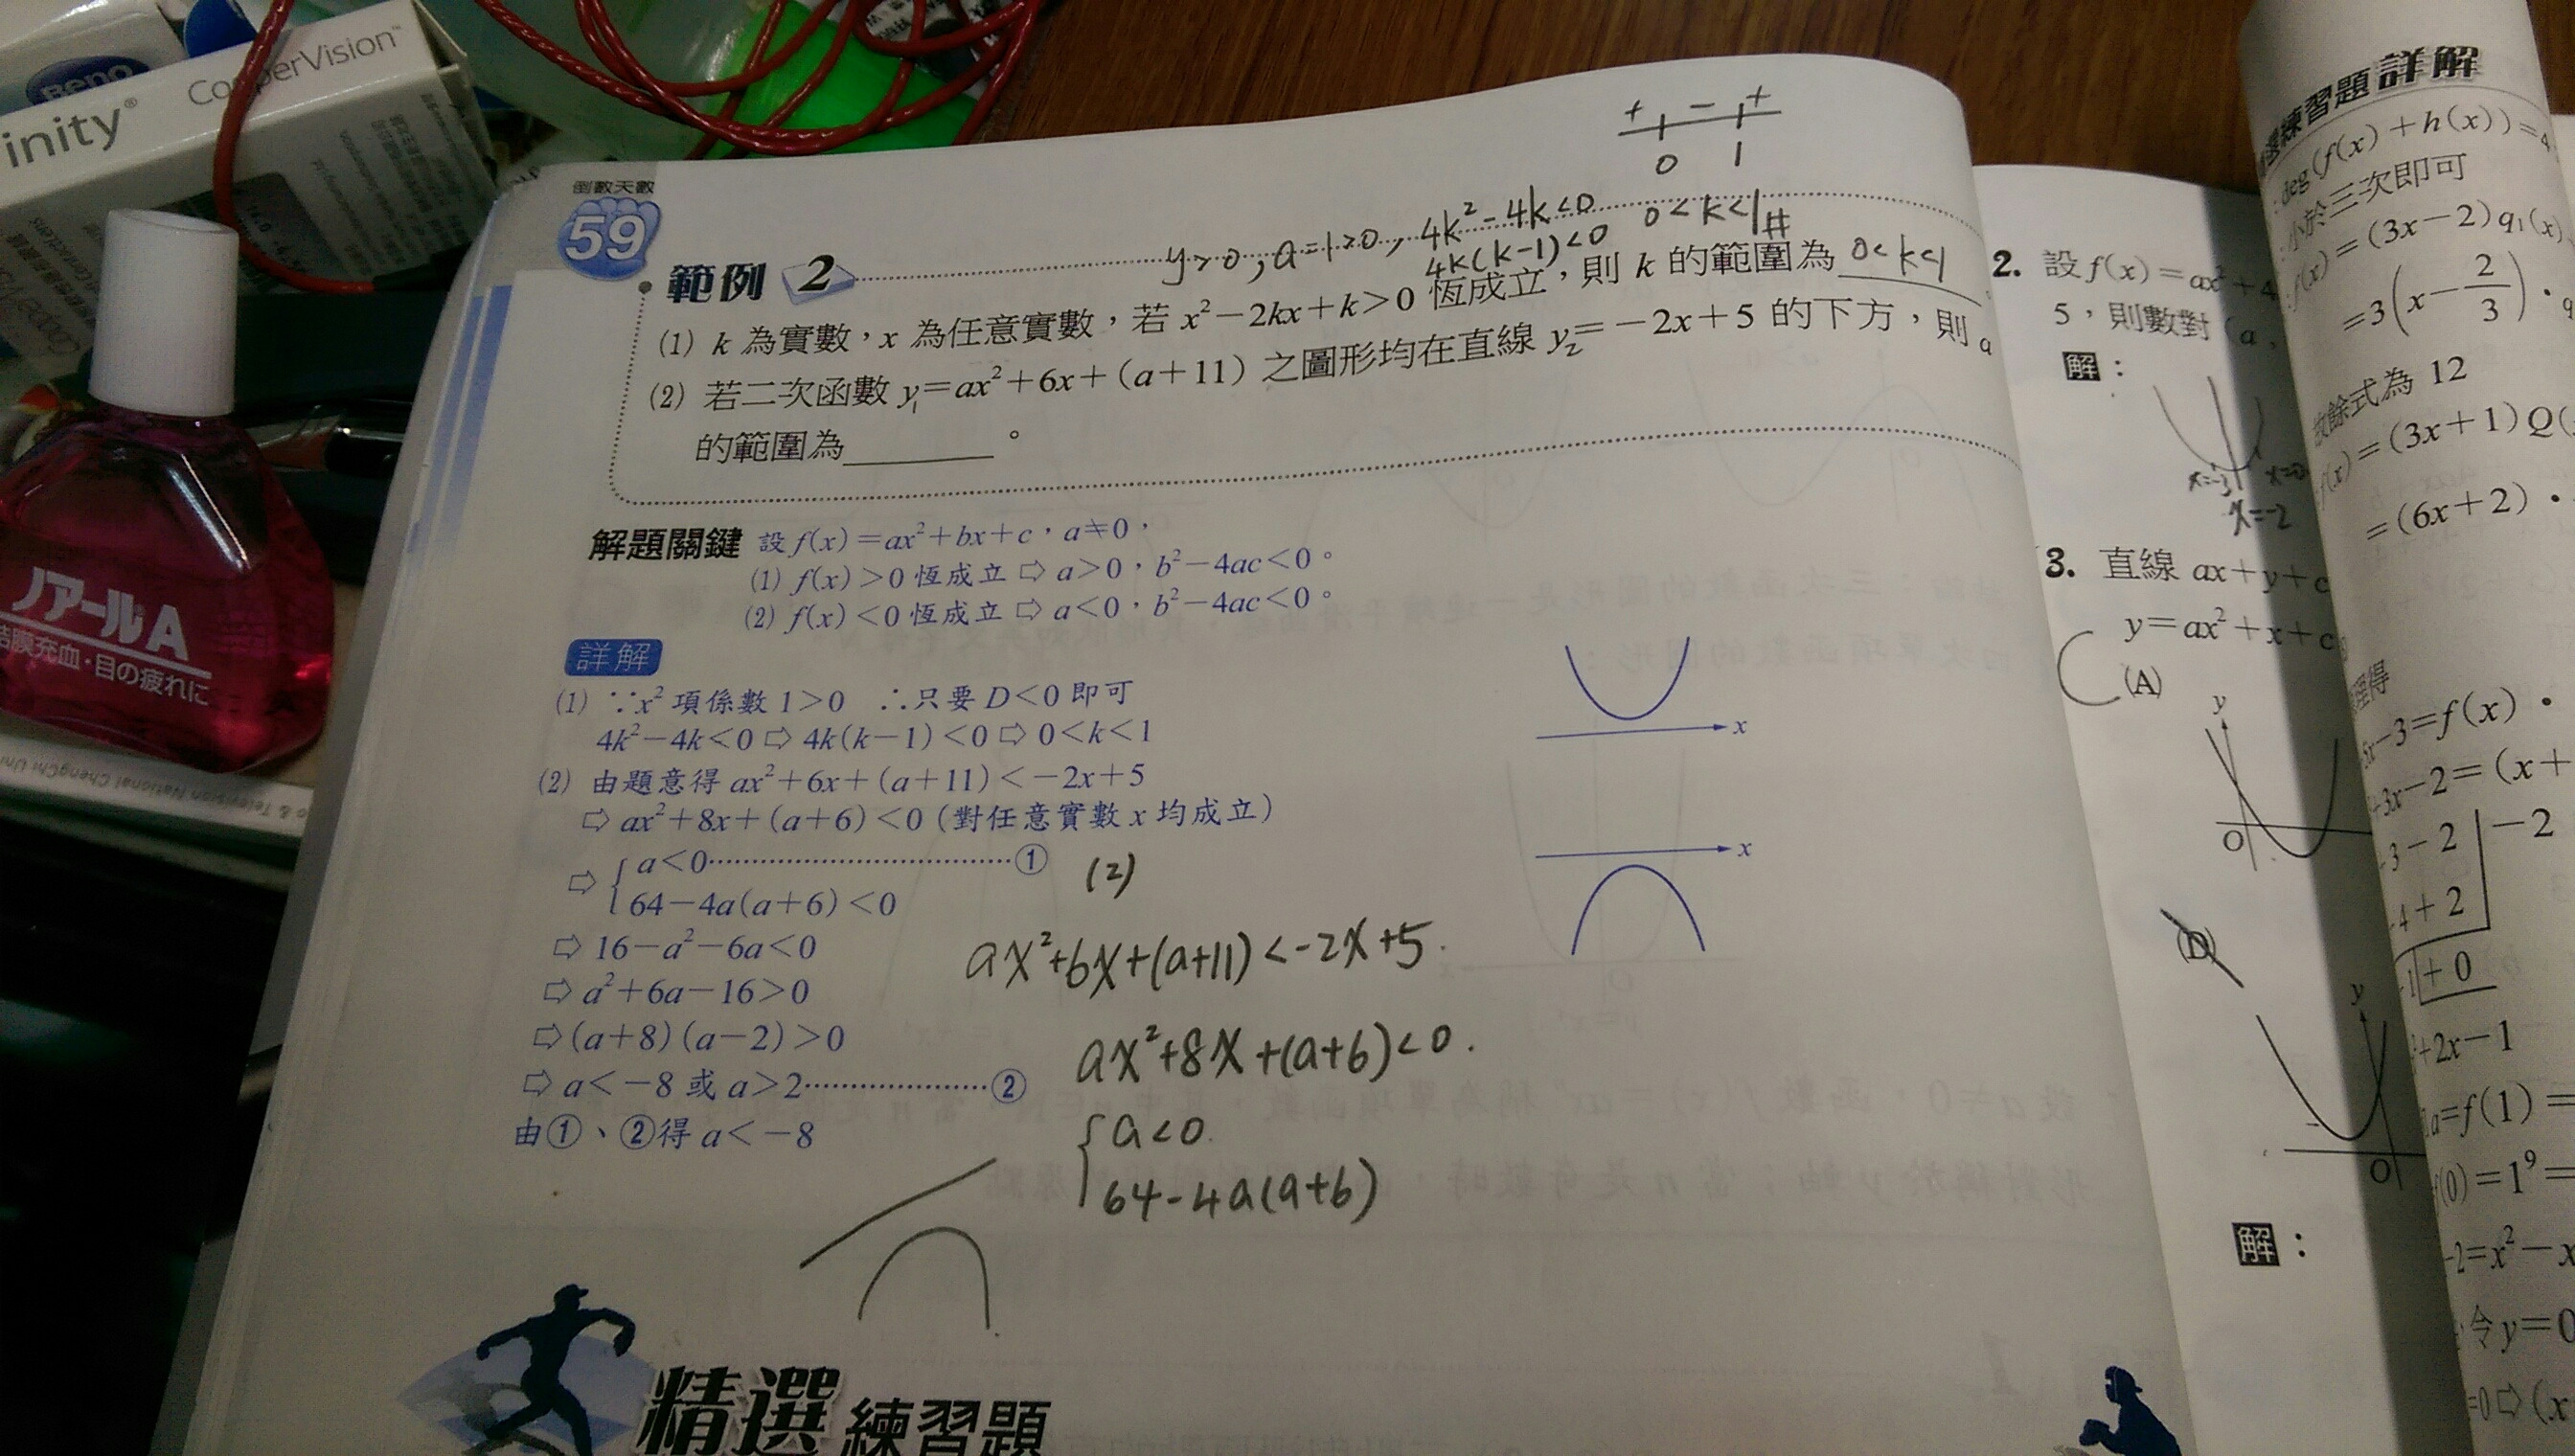 inity®
CooperVision™
ノアールA
結膜充血・目の疲れに
倒數天數
59
+ − +
0 1
y>0, a=1>0, 4k²-4k<0 0<k<1 #
4k(k-1)<0
範例 2
(1) k 為實數,x 為任意實數,若 x²−2kx+k>0 恆成立,則 k 的範圍為 0<k<1
(2) 若二次函數 y₁=ax²+6x+(a+11) 之圖形均在直線 y₂=−2x+5 的下方,則 a
的範圍為________。
解題關鍵 設 f(x)=ax²+bx+c,a≠0,
(1) f(x)>0 恆成立 ⇨ a>0,b²−4ac<0。
(2) f(x)<0 恆成立 ⇨ a<0,b²−4ac<0。
詳解
(1) ∵x² 項係數 1>0 ∴只要 D<0 即可
4k²−4k<0 ⇨ 4k(k−1)<0 ⇨ 0<k<1
x
(2) 由題意得 ax²+6x+(a+11)<−2x+5
⇨ ax²+8x+(a+6)<0 (對任意實數 x 均成立)
⇨ { a<0……………………………①
64−4a(a+6)<0
⇨ 16−a²−6a<0
⇨ a²+6a−16>0
⇨ (a+8)(a−2)>0
⇨ a<−8 或 a>2…………………②
由①、②得 a<−8
x
(2)
ax²+6x+(a+11)<-2x+5.
ax²+8x+(a+6)<0.
{ a<0.
64-4a(a+6)
精選練習題
2. 設 f(x)=ax²+4
5,則數對 (a,
解:
x=-3 x=0
x=-2
3. 直線 ax+y+c
y=ax²+x+c
(A)
y
O
(D)
y
O
解:
練習題詳解
deg(f(x)+h(x))=4
小於三次即可
f(x)=(3x−2)q₁(x)
=3(x−2/3)·q
故餘式為 12
f(x)=(3x+1)Q(
=(6x+2)·
理得
−3=f(x)·
3x−2=(x+
−3−2 −2
−4+2
+0
+2x−1
a=f(1)=
(0)=1⁹=
−2=x²−x
令 y=0
=0⇨(x